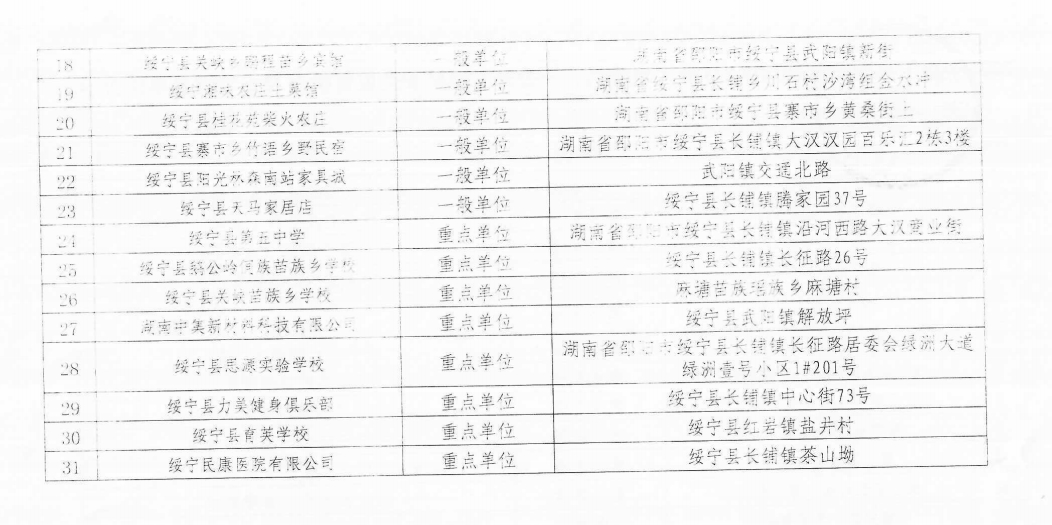 18 绥宁县关峡乡 苗乡宾馆 一般单位 湖南省邵阳市绥宁县武阳镇新街
19 绥宁湘味农庄土菜馆 一般单位 湖南省绥宁县长铺乡川石村沙湾组金水冲
20 绥宁县桂花苑柴火农庄 一般单位 湖南省邵阳市绥宁县寨市乡黄桑街上
21 绥宁县寨市乡竹语乡野民宿 一般单位 湖南省邵阳市绥宁县长铺镇大汉汉园百乐汇2栋3楼
22 绥宁县阳光林森南站家具城 一般单位 武阳镇交通北路
23 绥宁县天马家居店 一般单位 绥宁县长铺镇腾家园37号
24 绥宁县第五中学 重点单位 湖南省邵阳市绥宁县长铺镇沿河西路大汉商业街
25 绥宁县鹅公岭侗族苗族乡学校 重点单位 绥宁县长铺镇长征路26号
26 绥宁县关峡苗族乡学校 重点单位 麻塘苗族瑶族乡麻塘村
27 湖南中集新材料科技有限公司 重点单位 绥宁县武阳镇解放坪
28 绥宁县思源实验学校 重点单位 湖南省邵阳市绥宁县长铺镇长征路居委会绿洲大道
绿洲壹号小区1#201号
29 绥宁县力美健身俱乐部 重点单位 绥宁县长铺镇中心街73号
30 绥宁县育英学校 重点单位 绥宁县红岩镇盐井村
31 绥宁民康医院有限公司 重点单位 绥宁县长铺镇茶山坳